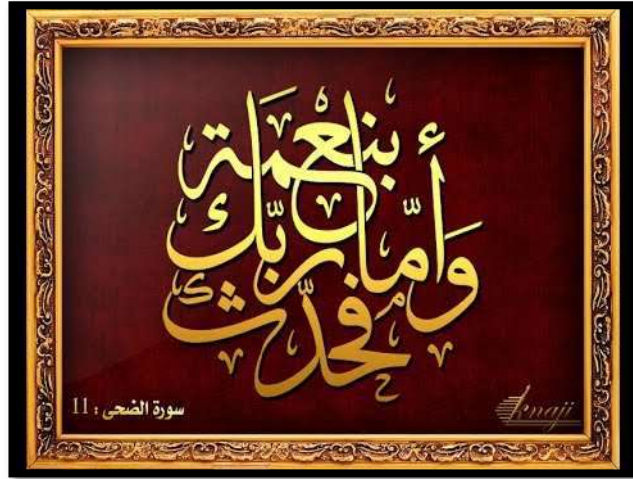 وَأمّا بنعمة ربّك فحدّث
سورة الضحى : 11
knaji